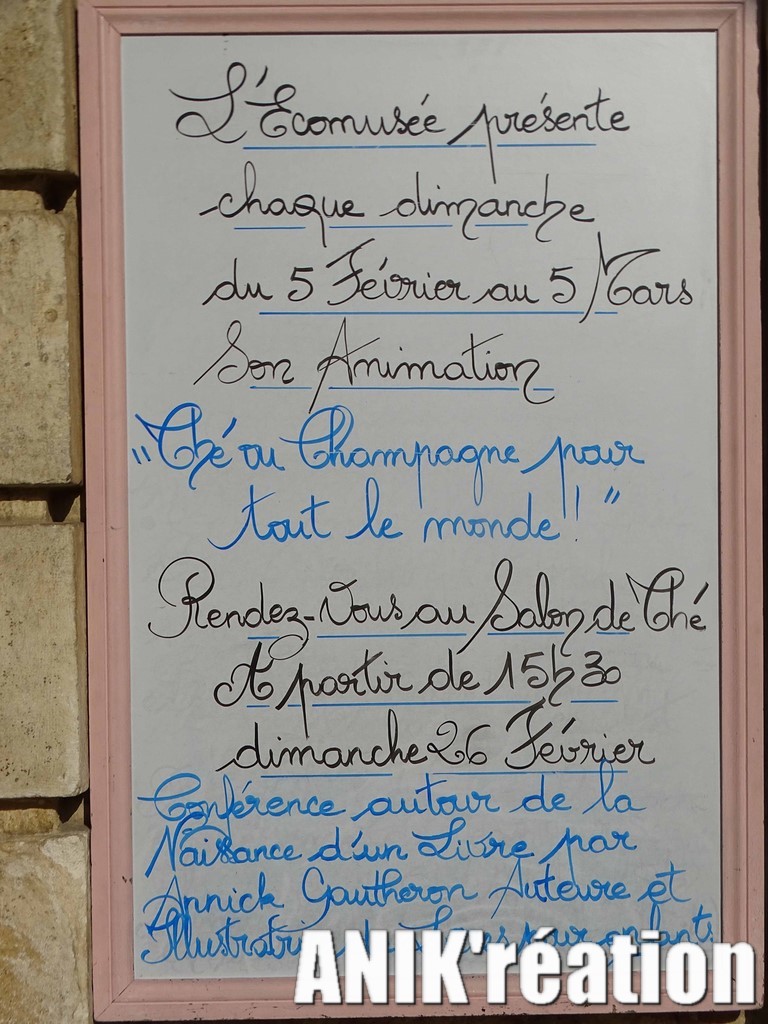 L'Ecomusée présente
chaque dimanche
du 5 Février au 5 Mars
Son Animation
"Thé ou Champagne pour
tout le monde !"
Rendez-Vous au Salon de Thé
A partir de 15h30
dimanche 26 Février
Conférence autour de la
Naissance d'un Livre par
Annick Gautheron Auteure et
Illustratrice de Livres pour enfants
ANIK'réation